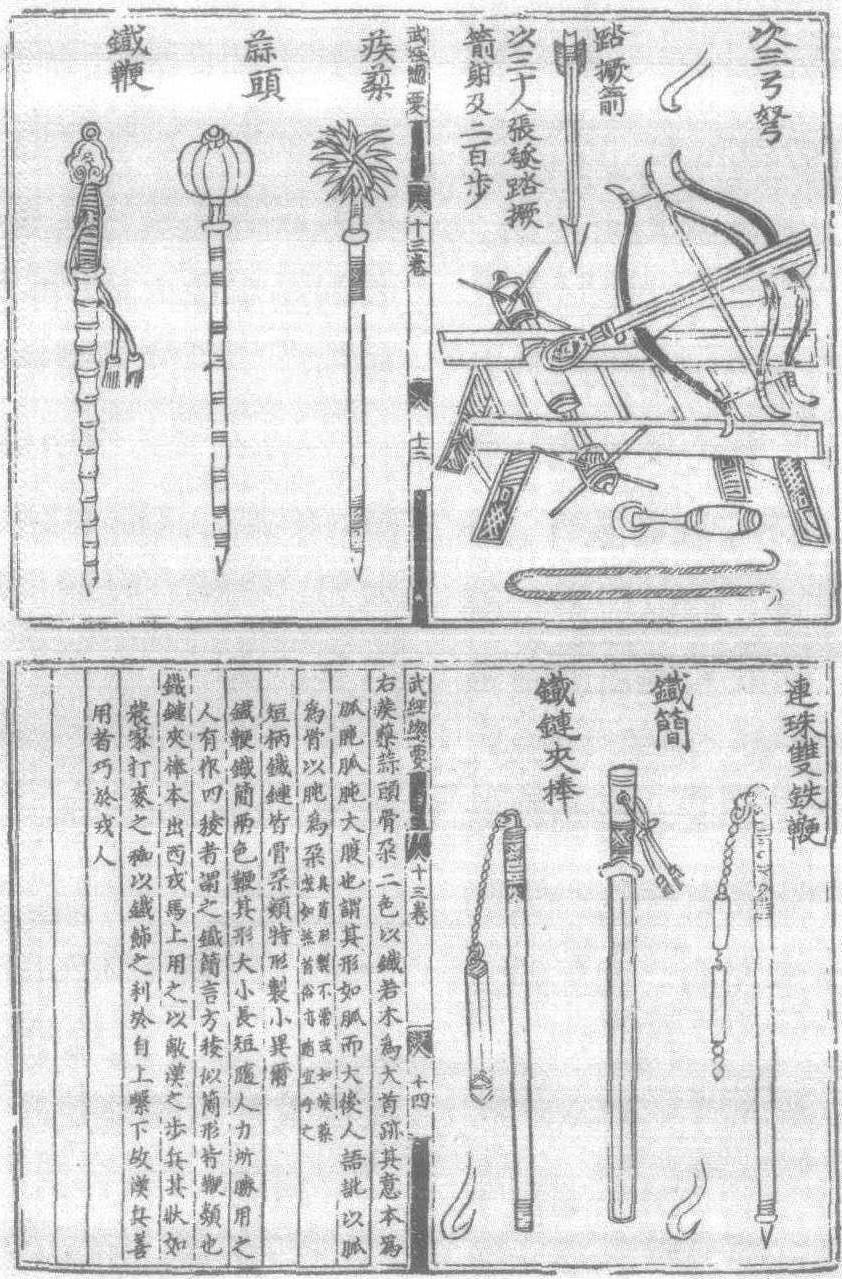 次三弓弩
踏撅箭
以三十人張發踏撅
箭射及二百步
武經總要
十三卷
十三
蒺藜
蒜頭
鐵鞭
連珠雙鉄鞭
鐵簡
鐵鏈夾棒
武經總要
十三卷
十四
右蒺藜蒜頭骨朶二色以鐵若木為大首跡其意本為
胍肫胍肫大腹也謂其形如胍而大後人語訛以胍
為骨以肫為朶
短柄鐵鏈皆骨朶類特形製小異爾
鐵鞭鐵簡兩色鞭其形大小長短隨人力所勝用之
人有作四稜者謂之鐵簡言方稜似簡形皆鞭類也
鐵鏈夾棒本出西戎馬上用之以敵漢之步兵其狀如
農家打麥之枷以鐵飾之利於自上擊下故漢兵善
用者巧於戎人